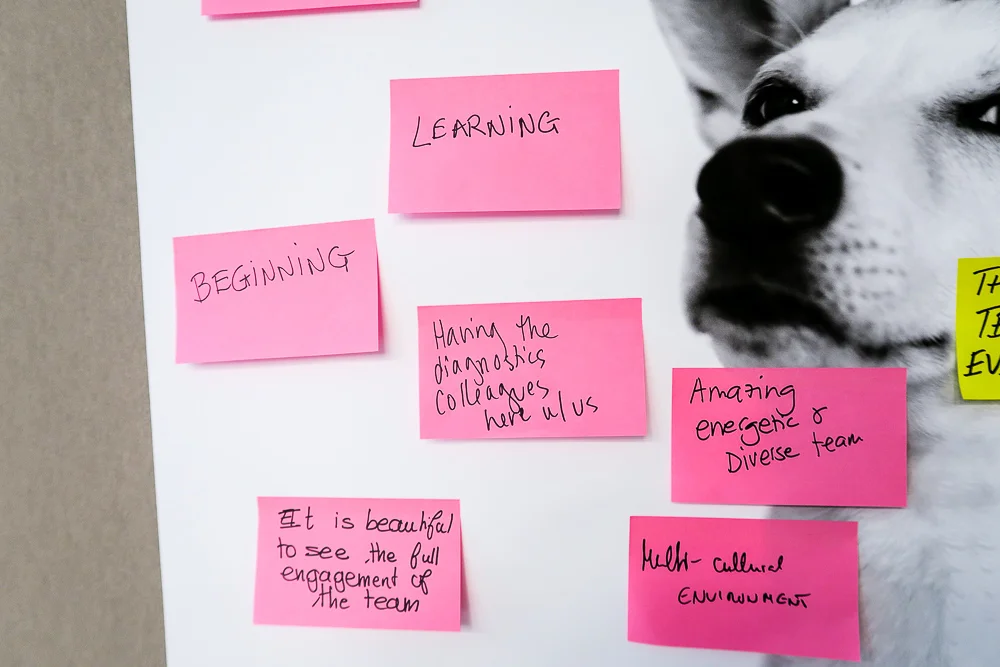 LEARNiNG
BEGiNNiNG
Having the
diagnostics
colleagues
here w/ us
Amazing
energetic &
Diverse team
It is beautiful
to see the full
engagement of
the team
Multi-cultural
ENVIRONMENT
TH
TE
EV